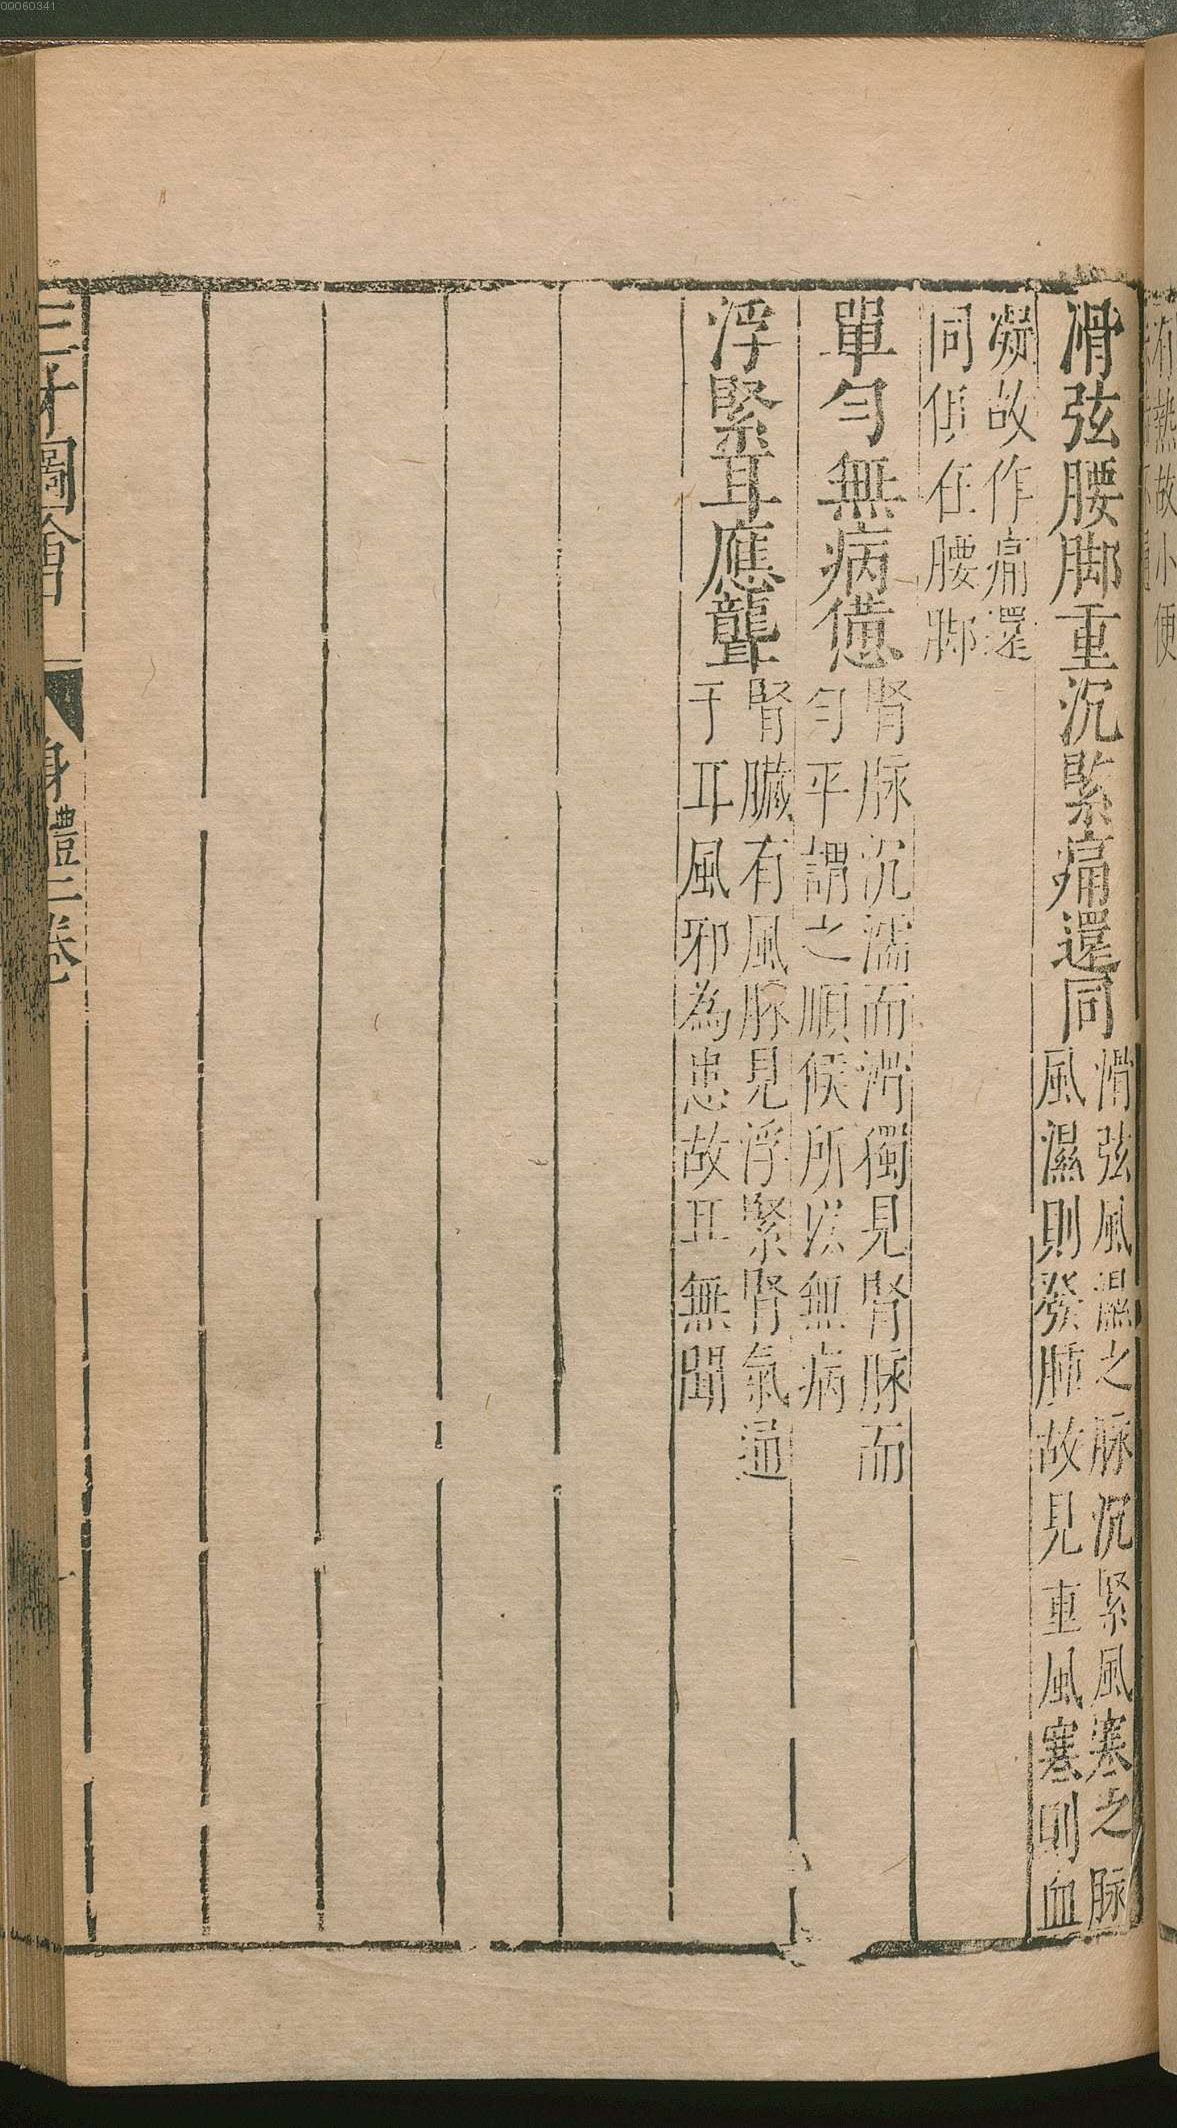 00060341
滑弦腰脚重沉緊痛還同
滑弦風濕之脉沉緊風寒之脉
風濕則發肺故見重風寒則血
凝故作痛還
同俱在腰脚
單匀無病憊
腎脉沉濡而滑獨見腎脉而
匀平謂之順候所以無病
浮緊耳應聾
腎臟有風脉見浮緊腎氣通
于耳風邪為患故耳無聞
三才圖會
身體二卷
有熱故小便